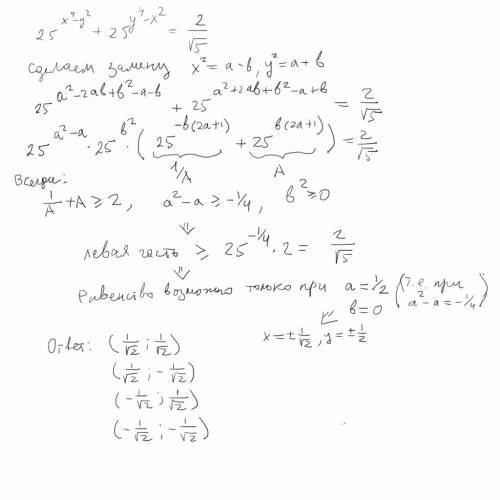 25^{x^4-y^2} + 25^{y^4-x^2} = \frac{2}{\sqrt{5}}
сделаем замену x^2 = a-b, y^2 = a+b
25^{a^2-2ab+b^2-a-b} + 25^{a^2+2ab+b^2-a+b} = \frac{2}{\sqrt{5}}
25^{a^2-a} \cdot 25^{b^2} \cdot ( 25^{-b(2a+1)} + 25^{b(2a+1)} ) = \frac{2}{\sqrt{5}}
1/A A
Всегда:
\frac{1}{A} + A ≥ 2, a^2-a ≥ -1/4, b^2 ≥ 0
⇓
левая часть ≥ 25^{-1/4} \cdot 2 = \frac{2}{\sqrt{5}}
⇓
Равенство возможно только при a = 1/2 (т.е. при a^2-a = -1/4)
b = 0
x = ± \frac{1}{\sqrt{2}}, y = ± \frac{1}{2}
Ответ: (\frac{1}{\sqrt{2}}; \frac{1}{\sqrt{2}})
(\frac{1}{\sqrt{2}}; -\frac{1}{\sqrt{2}})
(-\frac{1}{\sqrt{2}}; \frac{1}{\sqrt{2}})
(-\frac{1}{\sqrt{2}}; -\frac{1}{\sqrt{2}})